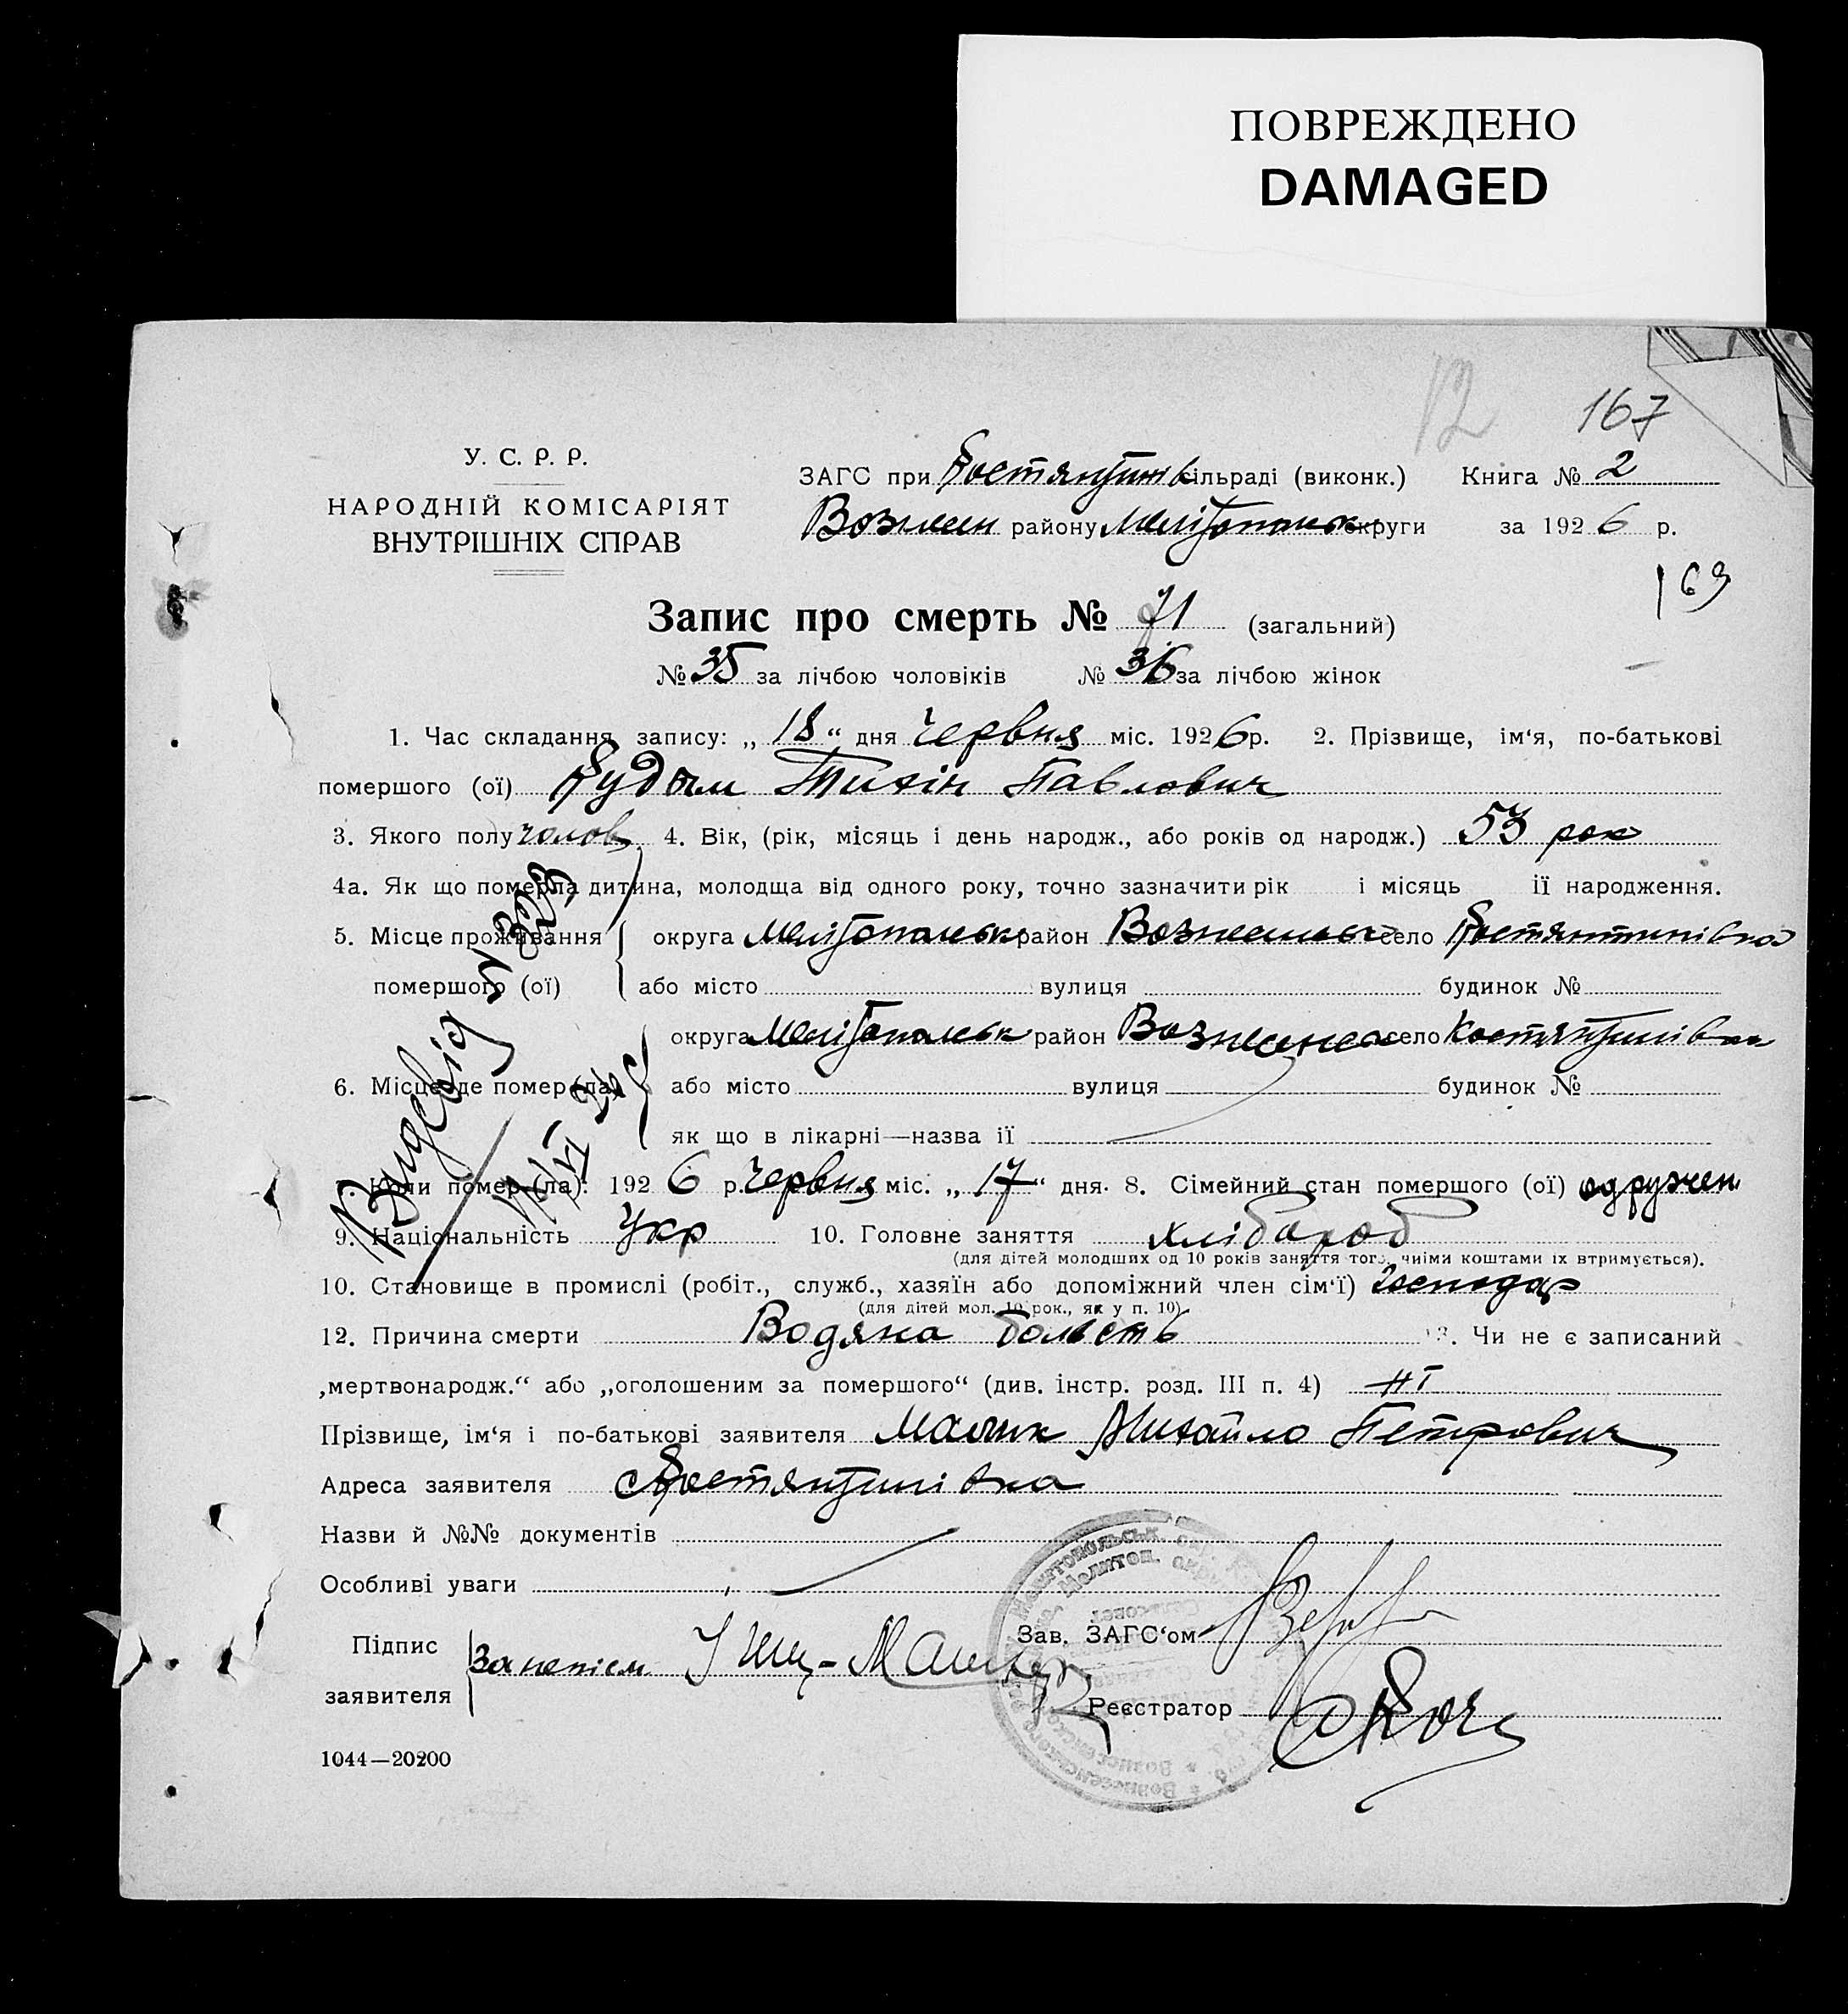 ПОВРЕЖДЕНО
DAMAGED
12 167
У. С. Р. Р.
НАРОДНІЙ КОМІСАРІЯТ
ВНУТРІШНІХ СПРАВ
ЗАГС при Костянтинів сільраді (виконк.) Книга № 2
Вознесен району Мелітопольськ округи за 1926 р.
169
Запис про смерть № 71 (загальний)
№ 35 за лічбою чоловіків № 36 за лічбою жінок
1. Час складання запису: „18“ дня Червня міс. 1926 р. 2. Прізвище, ім‘я, по-батькові
помершого (ої) Кудым Тихін Павлович
3. Якого полу чолов 4. Вік, (рік, місяць і день народж., або років од народж.) 53 рок
4а. Як що померла дитина, молодша від одного року, точно зазначити рік і місяць її народження.
5. Місце проживання помершого (ої) округа Мелітопольськ район Вознесенськ село Костянтинівка
або місто вулиця будинок №
6. Місце де помер (ла) округа Мелітопольськ район Вознесенськ село Костянтинівка
або місто вулиця будинок №
як що в лікарні—назва її
7. Коли помер (ла): 1926 р. Червня міс. „17“ дня. 8. Сімейний стан помершого (ої) одружен
9. Національність Укр 10. Головне заняття хлібороб
(для дітей молодших од 10 років заняття того, чиїми коштами їх втримується).
10. Становище в промислі (робіт., служб., хазяїн або допоміжний член сім‘ї) господар
(для дітей мол. 10 рок., як у п. 10).
12. Причина смерти Водяна болість 13. Чи не є записаний
„мертвонародж.“ або „оголошеним за помершого“ (див. інстр. розд. III п. 4) ні
Прізвище, ім‘я і по-батькові заявителя Малик Михайло Петрович
Адреса заявителя с Костянтинівка
Назви й №№ документів
Особливі уваги
Підпис заявителя
Зав. ЗАГС‘ом
Реєстратор
1044—20200